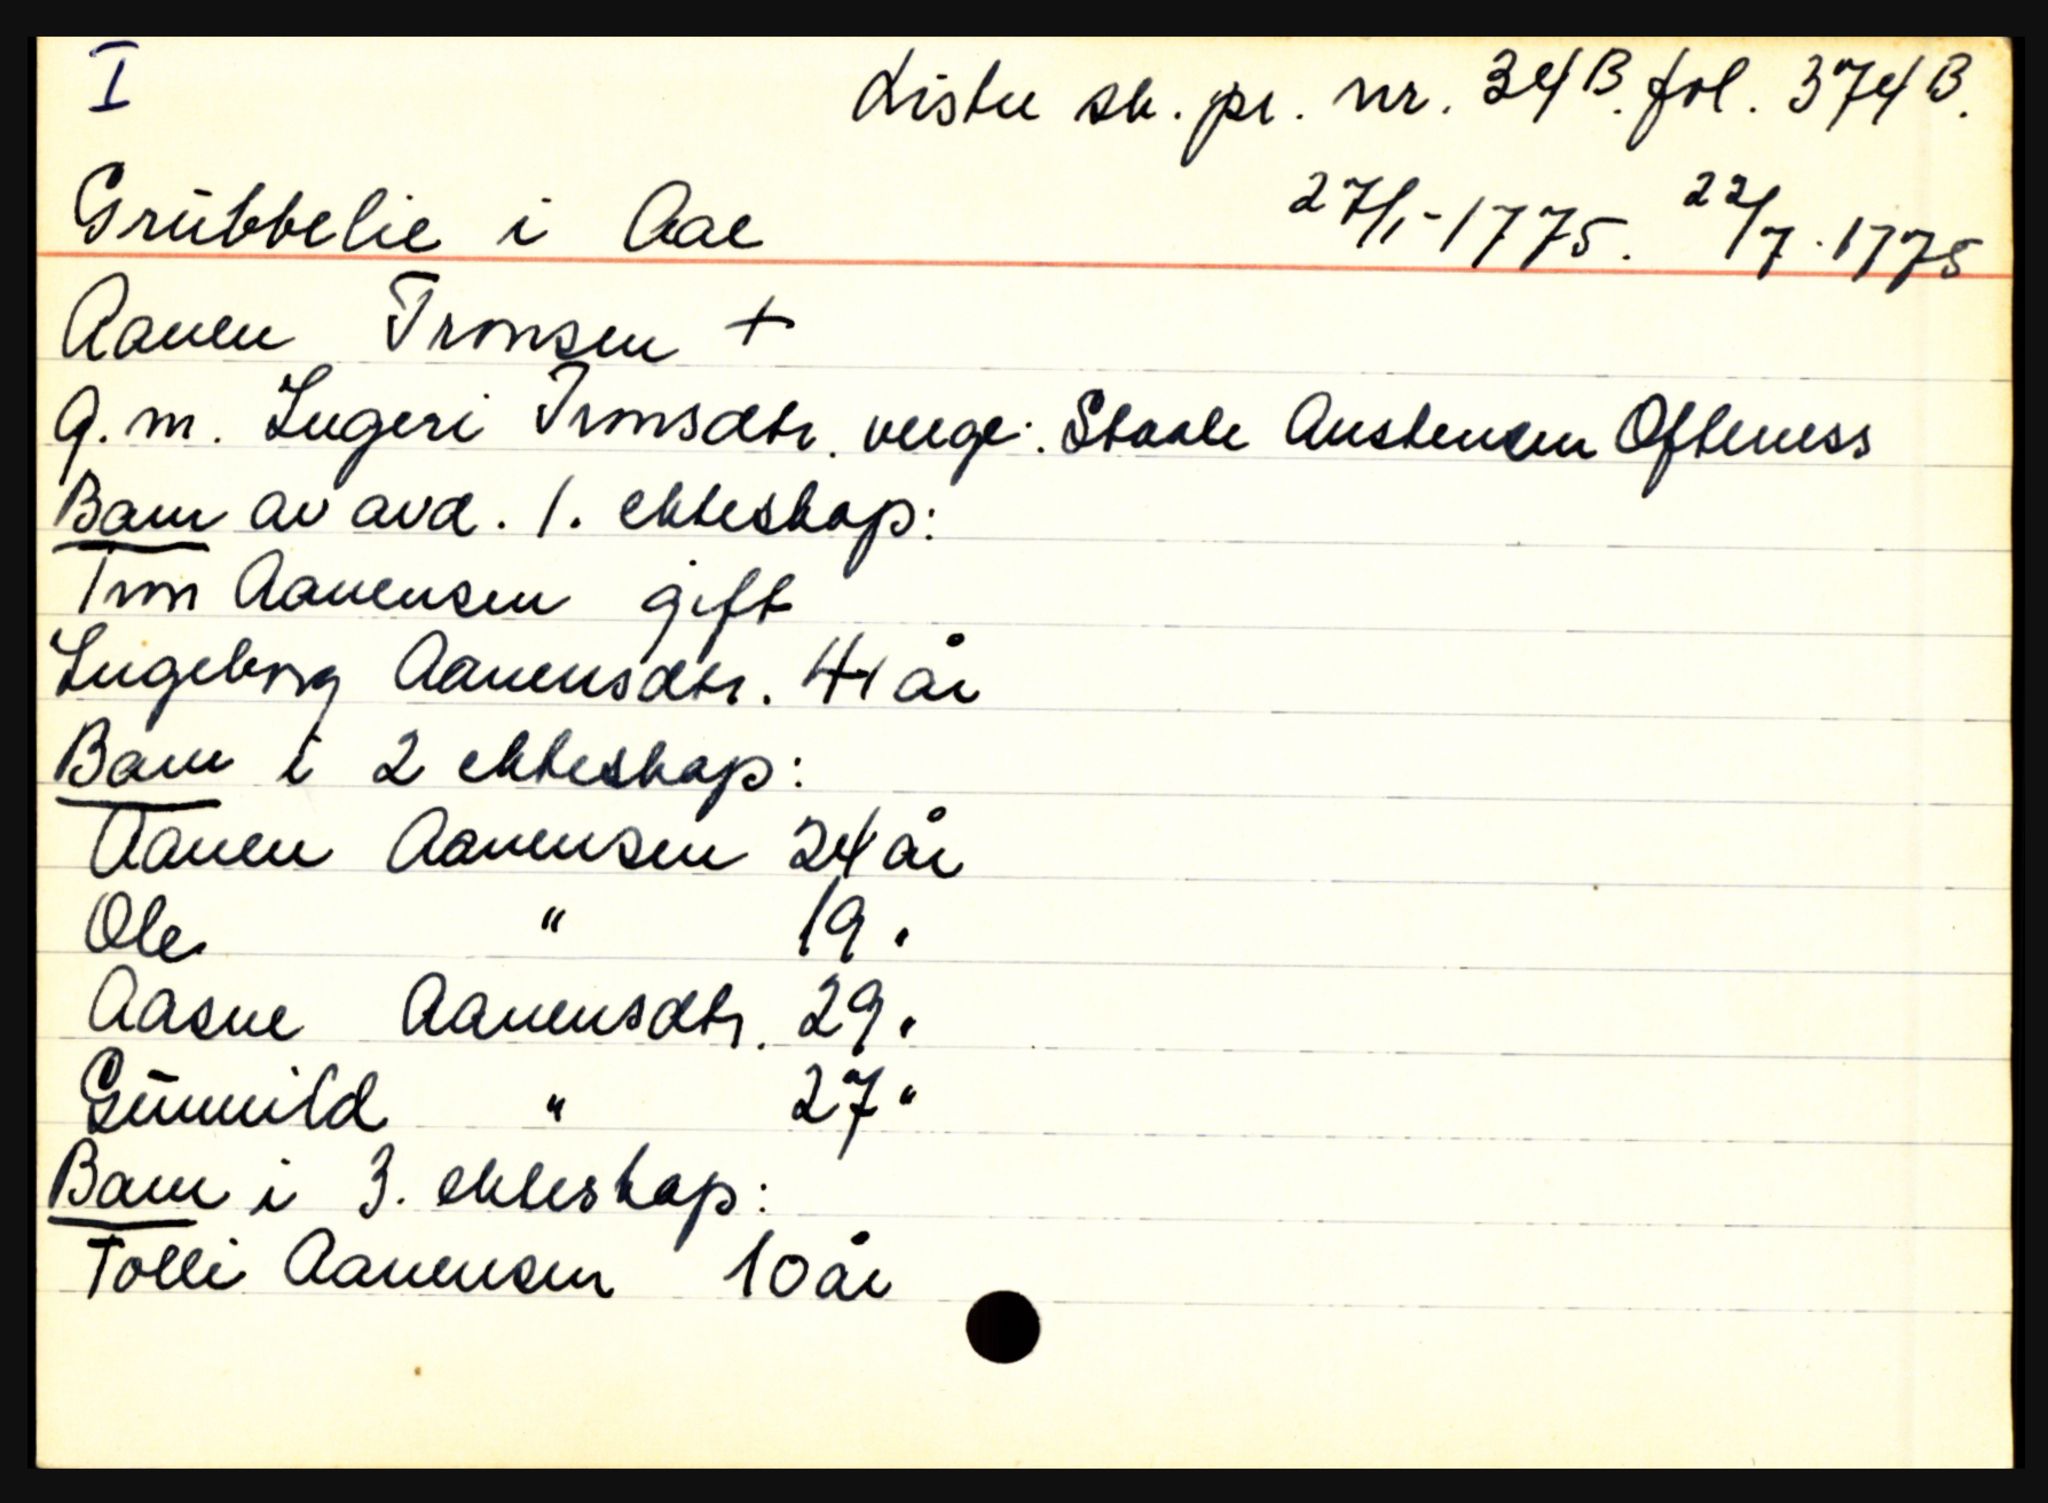 I
Lister sk. pr. nr. 34B. fol. 374B.
Grübbelie i Aae 27/1-1775. 22/7.1775
Aanen Tronsen +
g. m. Ingeri Tronsdtr. verge: Staale Austensen Ofteness
Barn av avd. 1. ekteskap:
Tron Aanensen gift
Ingeborg Aanensdtr. 41 år
Barn i 2 ekteskap:
Aanen Aanensen 24 år
Ole " 19 "
Aasne Aanensdtr. 29 "
Günnild " 27 "
Barn i 3. ekteskap:
Tolli Aanensen 10 år